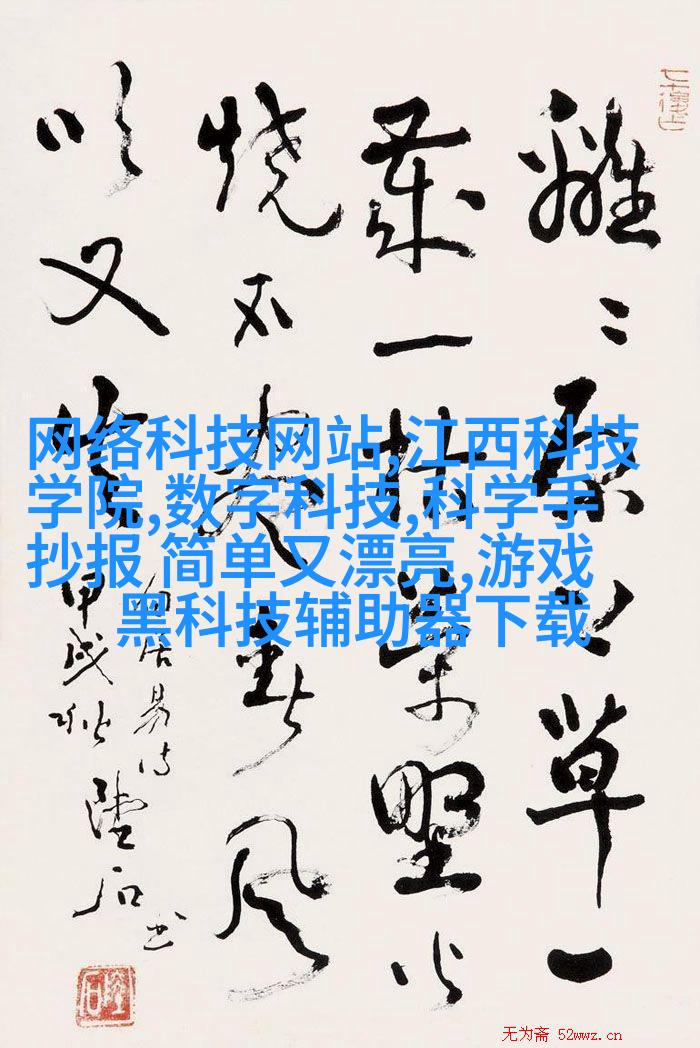 離〻原上草一
歲一枯榮野火
烧不尽春風
吹又生
白居易诗
甲戌秋
网络科技网站,江西科技
学院,数字科技,科学手
抄报 简单又漂亮,游戏
黑科技辅助器下载
无为斋 52wwz.cn